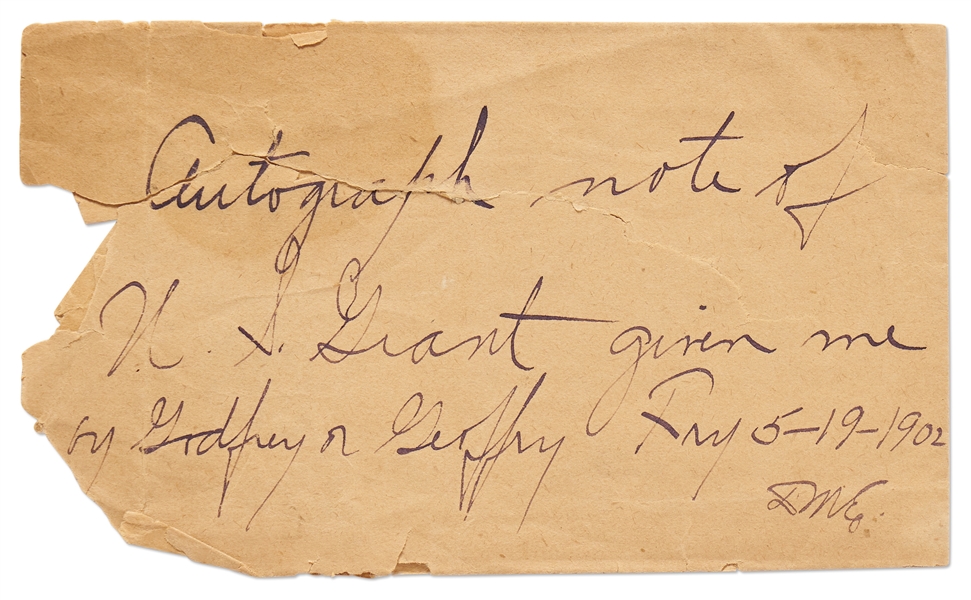 Autograph note of
U. S. Grant given me
by Godfrey or Geoffry Fry 5-19-1902
DME.